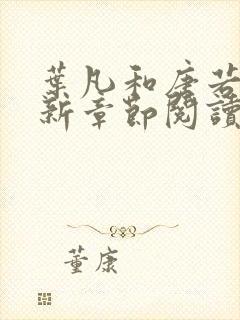 葉凡和唐若
新章節閱讀
董康